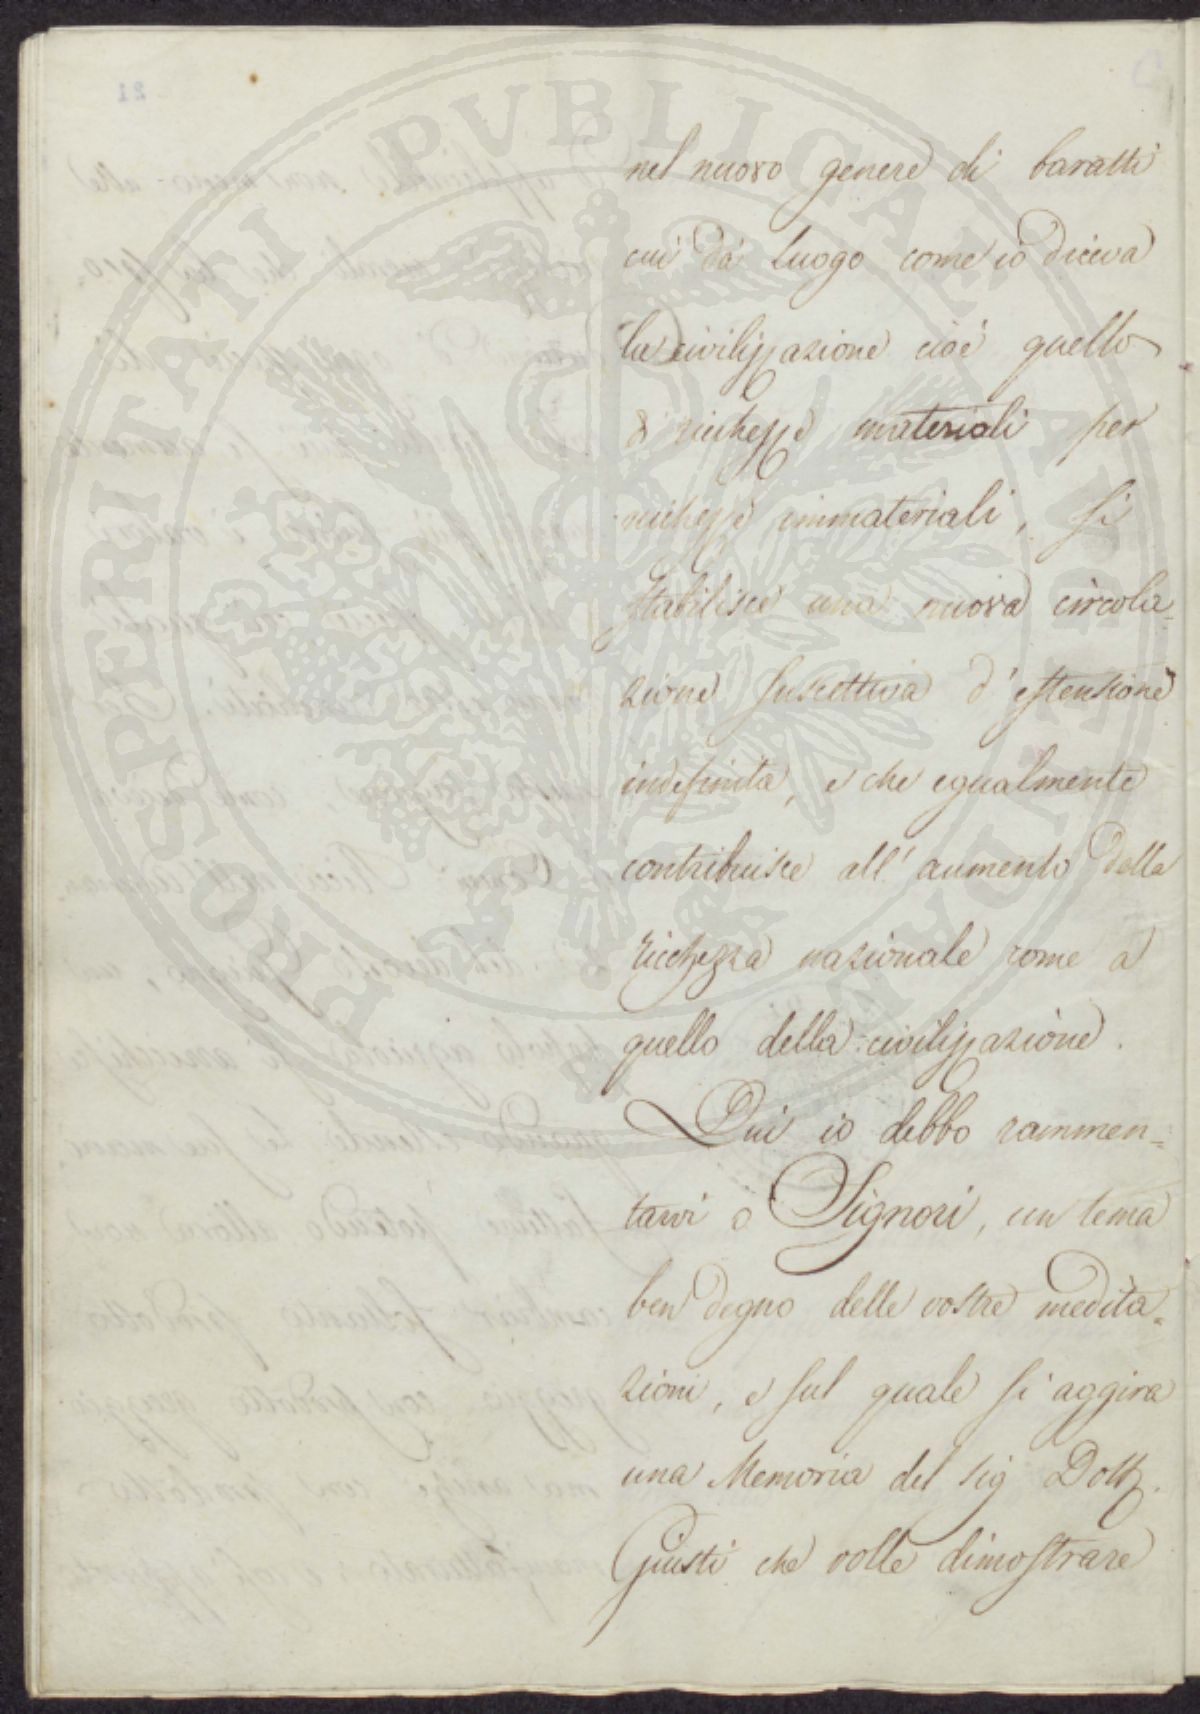 PROSPERITATI PUBLICAE AUGENDAE
nel nuovo genere di baratti
cui dà luogo come io diceva
la civilizzazione cioè quello
di ricchezze materiali per
ricchezze immateriali, si
stabilisce una nuova circola=
zione suscettiva d'estensione
indefinita, e che egualmente
contribuisce all'aumento della
ricchezza nazionale come a
quello della civilizzazione.
Qui io debbo rammen=
tarvi o Signori, un tema
ben degno delle vostre medita=
zioni, e sul quale si aggira
una Memoria del Sig Dott.
Giusti che volle dimostrare